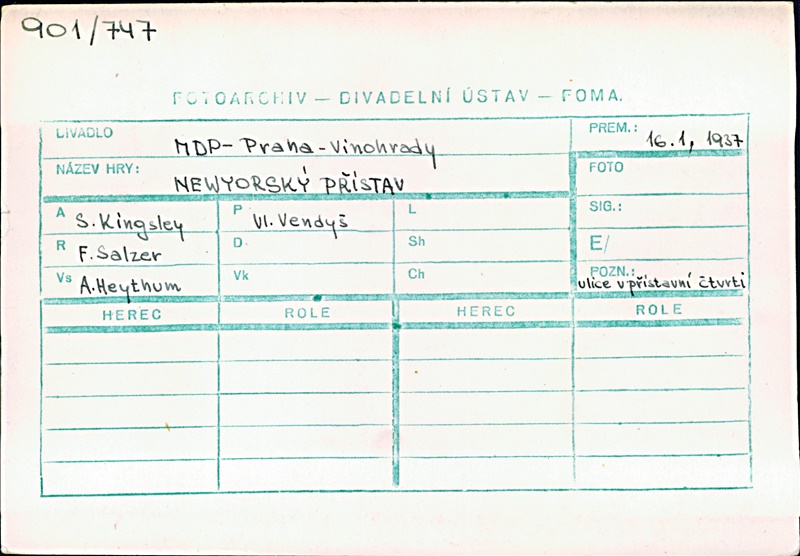 901/747
FOTOARCHIV – DIVADELNÍ ÚSTAV – FOMA.
DIVADLO MDP – Praha – Vinohrady PREM.: 16.1, 1937
NÁZEV HRY: NEWYORSKÝ PŘÍSTAV FOTO
A S. Kingsley P Vl. Vendyš L SIG.:
R F. Salzer D. Sh E/
Vs A. Heythum Vk Ch POZN.: ulice v přístavní čtvrti
HEREC ROLE HEREC ROLE